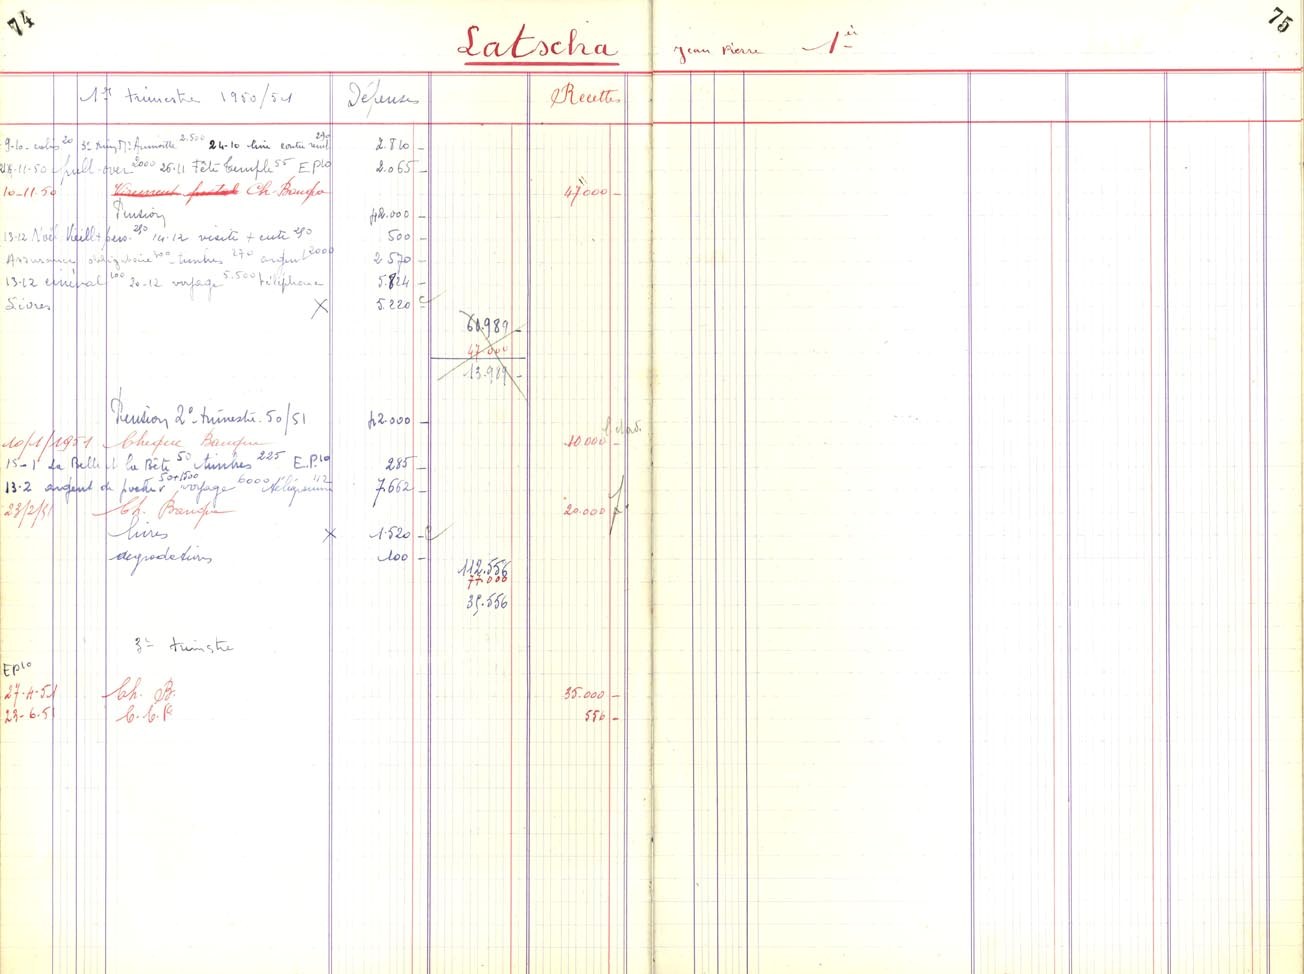 74
75
Latscha Jean Pierre 1è
1er trimestre 1950/51 Dépenses Recettes
9-10 colis 20 2.500 24-10 livre contre 290 2.810 -
28-11-50 pull-over 2000 26-11 Fête Temple 55 EP10 2.065 -
10-11-50 Virement postal Ch. Banque 47000 -
Pension 42.000 -
13-12 Noël 210 14-12 visite + cute 290 500 -
Assurance obligatoire 300 timbres 270 argent 2000 2570 -
13-12 cinéma 100 20-12 voyage 5.500 téléphone 5.824 -
Livres X 5.220
60.989 -
47000
13.989 -
Pension 2e trimestre 50/51 42.000 -
10/1/1951 Cheque Banque 10000 -
15-1 La Belle et la Bête 50 timbres 225 E.P.10 285 -
13-2 argent de poche 50+1500 voyage 6000 télégramme 112 7.662 -
23/2/51 Ch. Banque 20.000
livres X 1.520 -
degradations 100 -
112.556
77.000
35.556
3e trimestre
EP10
27-4-51 Ch. B. 35.000 -
23-6-51 C.C.P. 556 -